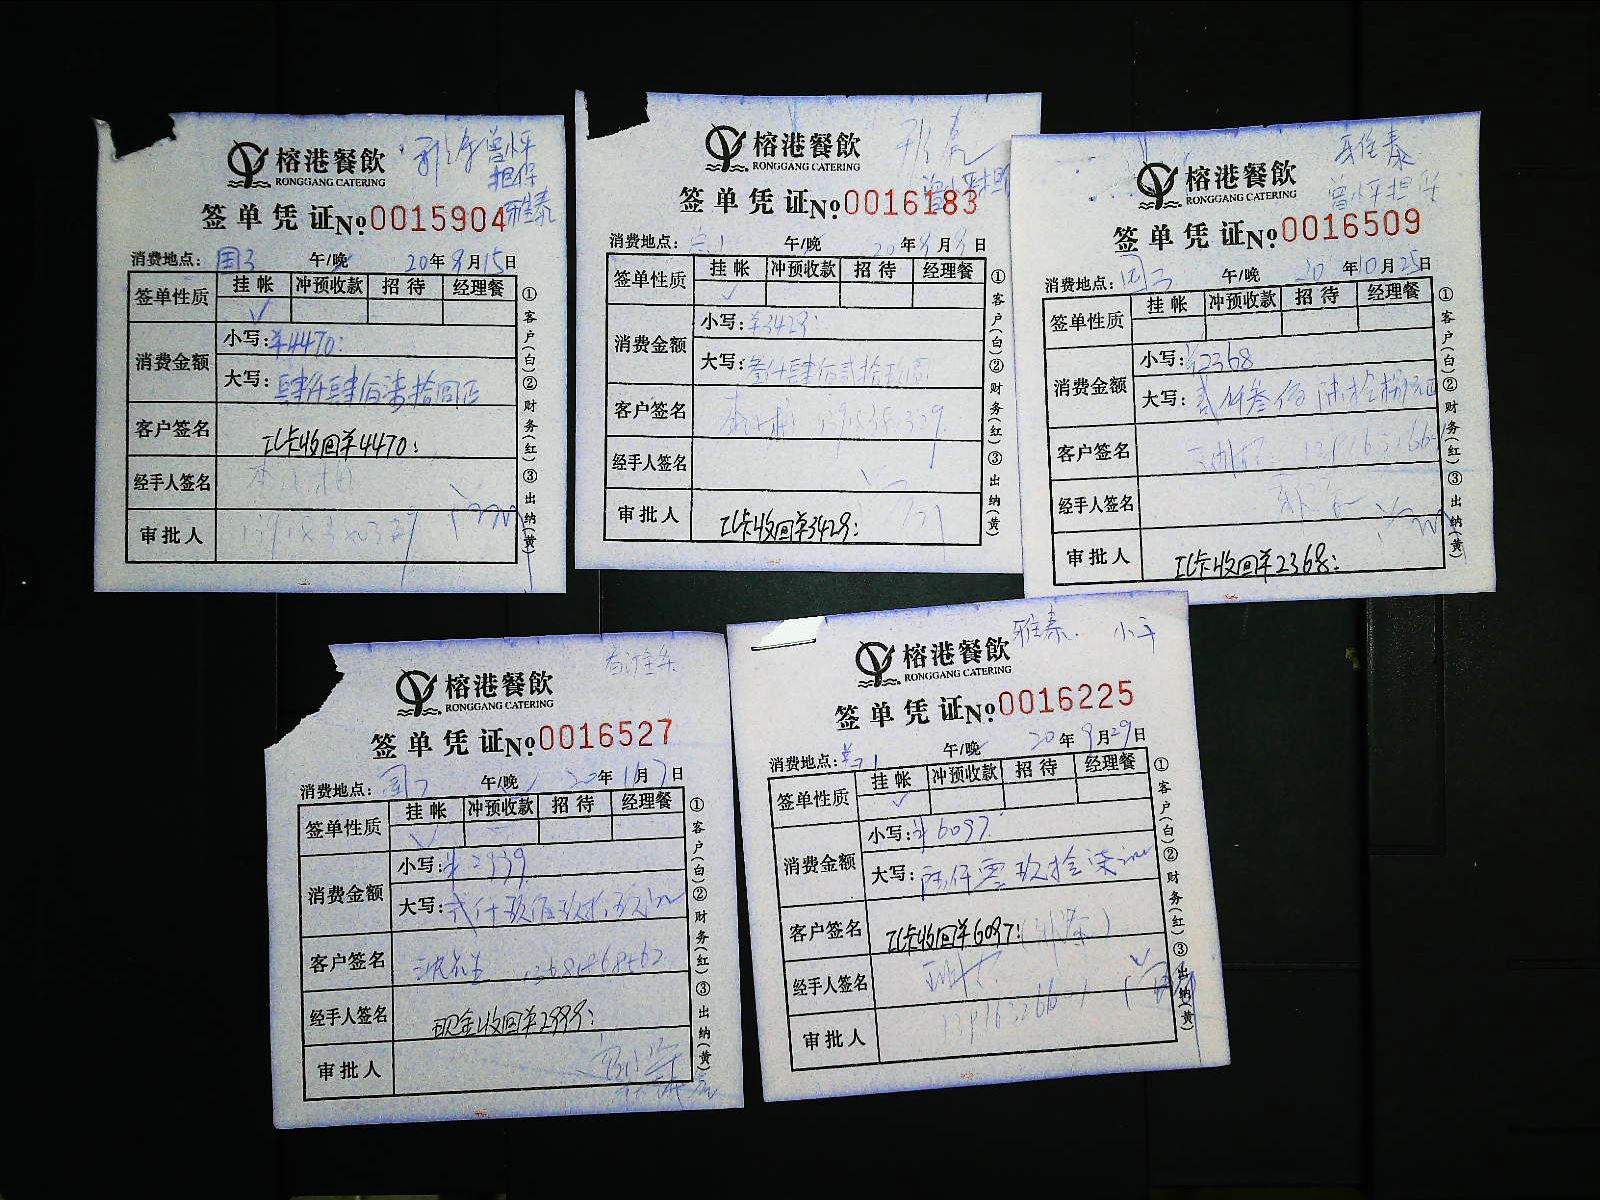 榕港餐飲
RONGGANG CATERING
曾小平
担保
雅泰
签单凭证 №0015904
消费地点: 国3 午/晚 20年9月15日
签单性质 挂帐 冲预收款 招待 经理餐
√
消费金额 小写: ¥4470:
大写: 肆仟肆佰柒拾圆正
客户签名 工卡收回¥4470:
经手人签名
审批人
①客户(白)②财务(红)③出纳(黄)
榕港餐飲
RONGGANG CATERING
曾小平担
签单凭证 №0016183
消费地点: 午/晚 20年9月9日
签单性质 挂帐 冲预收款 招待 经理餐
√
消费金额 小写: ¥3429:
大写: 叁仟肆佰贰拾玖圆
客户签名
经手人签名
审批人 工卡收回¥3429:
①客户(白)②财务(红)③出纳(黄)
雅泰
曾小平担保
榕港餐飲
RONGGANG CATERING
签单凭证 №0016509
消费地点: 午/晚 20年10月25日
签单性质 挂帐 冲预收款 招待 经理餐
消费金额 小写: ¥2368
大写: 贰仟叁佰陆拾捌元正
客户签名
经手人签名
审批人 工卡收回¥2368:
①客户(白)②财务(红)③出纳(黄)
榕港餐飲
RONGGANG CATERING
签单凭证 №0016527
消费地点: 午/晚 20年11月7日
签单性质 挂帐 冲预收款 招待 经理餐
√
消费金额 小写: ¥2999
大写: 贰仟玖佰玖拾玖元
客户签名
经手人签名 现金收回¥2999:
审批人
①客户(白)②财务(红)③出纳(黄)
雅泰. 小平
榕港餐飲
RONGGANG CATERING
签单凭证 №0016225
消费地点: 午/晚 20年9月29日
签单性质 挂帐 冲预收款 招待 经理餐
√
消费金额 小写: ¥6097
大写: 陆仟零玖拾柒元
客户签名 工卡收回¥6097:
经手人签名
审批人
①客户(白)②财务(红)③出纳(黄)